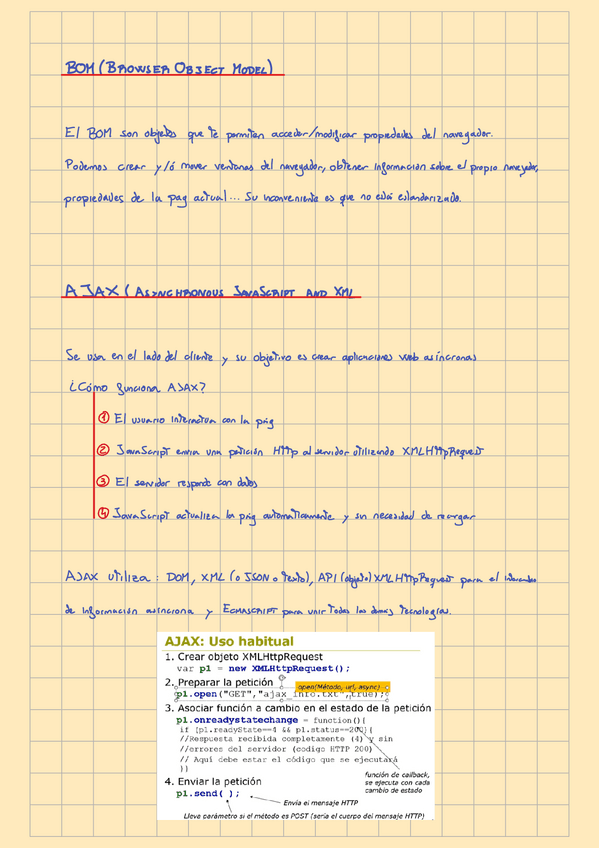 BOM (BROWSER OBJECT MODEL)
El BOM son objetos que te permiten acceder/modificar propiedades del navegador.
Podemos crear y/ó mover ventanas del navegador, obtener información sobre el propio navegador,
propiedades de la pag actual... Su inconveniente es que no está estandarizado.
AJAX (ASYNCHRONOUS JAVASCRIPT AND XML
Se usa en el lado del cliente y su objetivo es crear aplicaciones web asíncronas
¿Cómo funciona AJAX?
1 El usuario interactua con la pág
2 JavaScript envia una petición Http al servidor utilizando XMLHttpRequest
3 El servidor responde con datos
4 JavaScript actualiza la pág automáticamente y sin necesidad de recargar
AJAX utiliza: DOM, XML (o JSON o Texto), API (objeto) XMLHttpRequest para el intercambio
de información asíncrona y ECMASCRIPT para unir todas las demás tecnologías.
AJAX: Uso habitual
1. Crear objeto XMLHttpRequest
var p1 = new XMLHttpRequest();
2. Preparar la petición
open(Método, url, async)
p1.open("GET","ajax_info.txt",true);
3. Asociar función a cambio en el estado de la petición
p1.onreadystatechange = function(){
if (p1.readyState==4 && p1.status==200){
//Respuesta recibida completamente (4) y sin
//errores del servidor (codigo HTTP 200)
// Aquí debe estar el código que se ejecutará
}}
función de callback,
se ejecuta con cada
cambio de estado
4. Enviar la petición
p1.send( );
Envia el mensaje HTTP
Lleva parámetro si el método es POST (sería el cuerpo del mensaje HTTP)